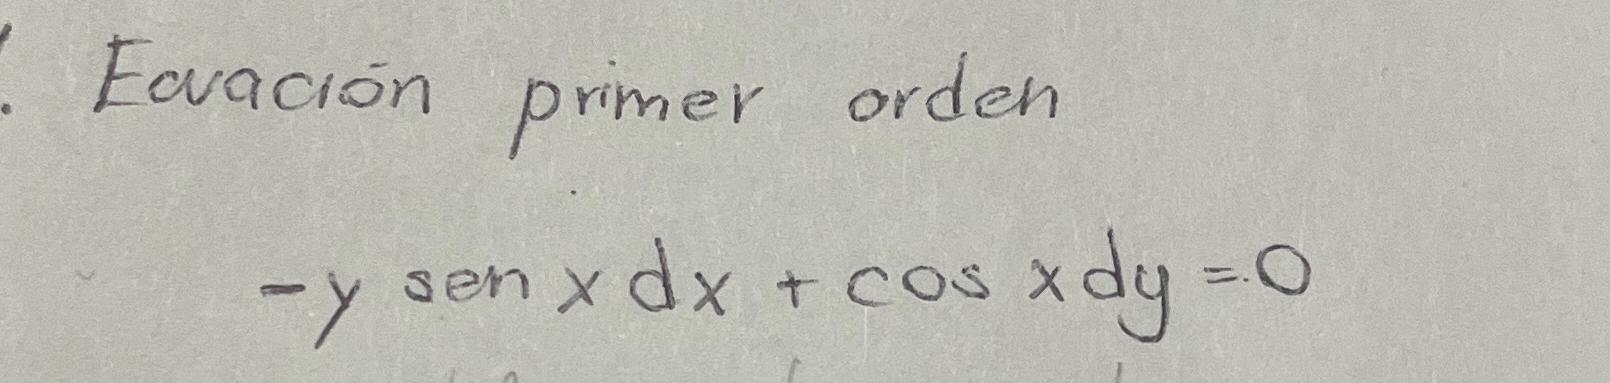 . Ecuación primer orden
-y sen x dx + cos x dy = 0